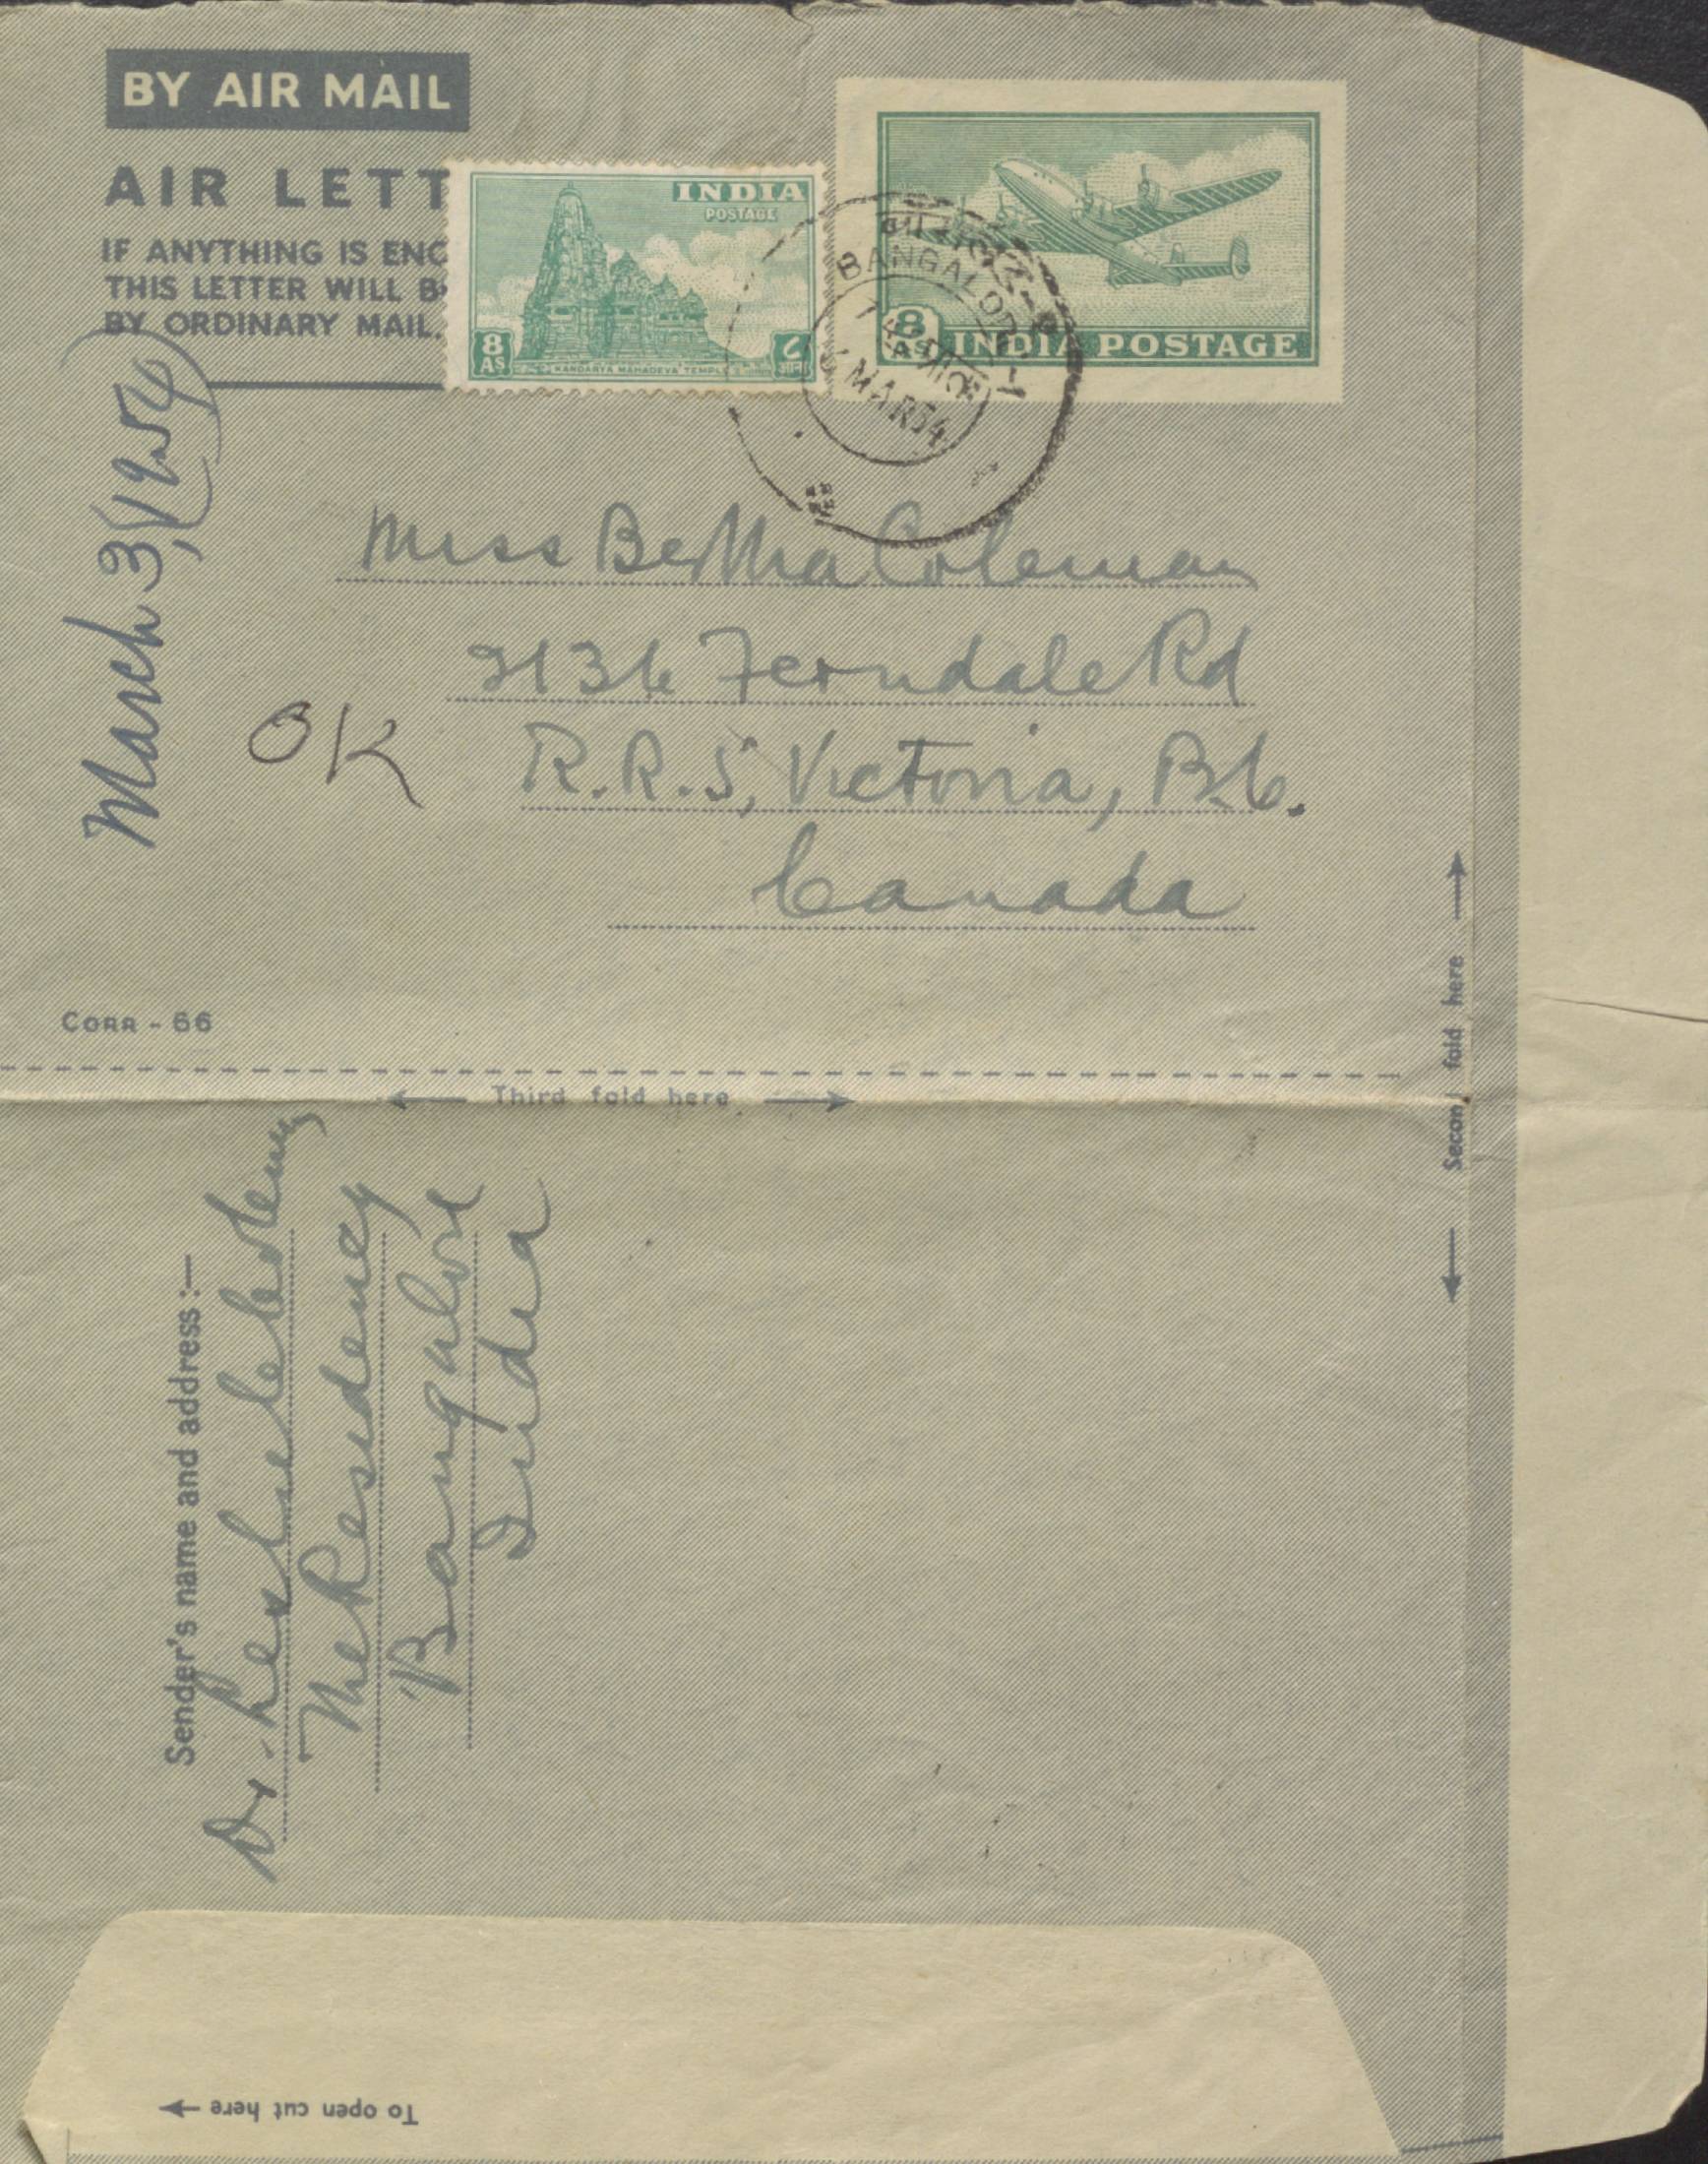 BY AIR MAIL
AIR LETT
IF ANYTHING IS ENC
THIS LETTER WILL B
BY ORDINARY MAIL.
INDIA
POSTAGE
8
AS
KANDARYA MAHADEVA TEMPLE
८
8
AS
INDIA POSTAGE
BANGALORE
MAR54
March 3, 1954
Miss Bertha Coleman
2136 Ferndale Rd
OK
R.R.5, Victoria, B.C.
Canada
CORR - 66
Third fold here
Second fold here
Sender's name and address :—
Dr. Leslie
The Residency
Bangalore
India
To open cut here